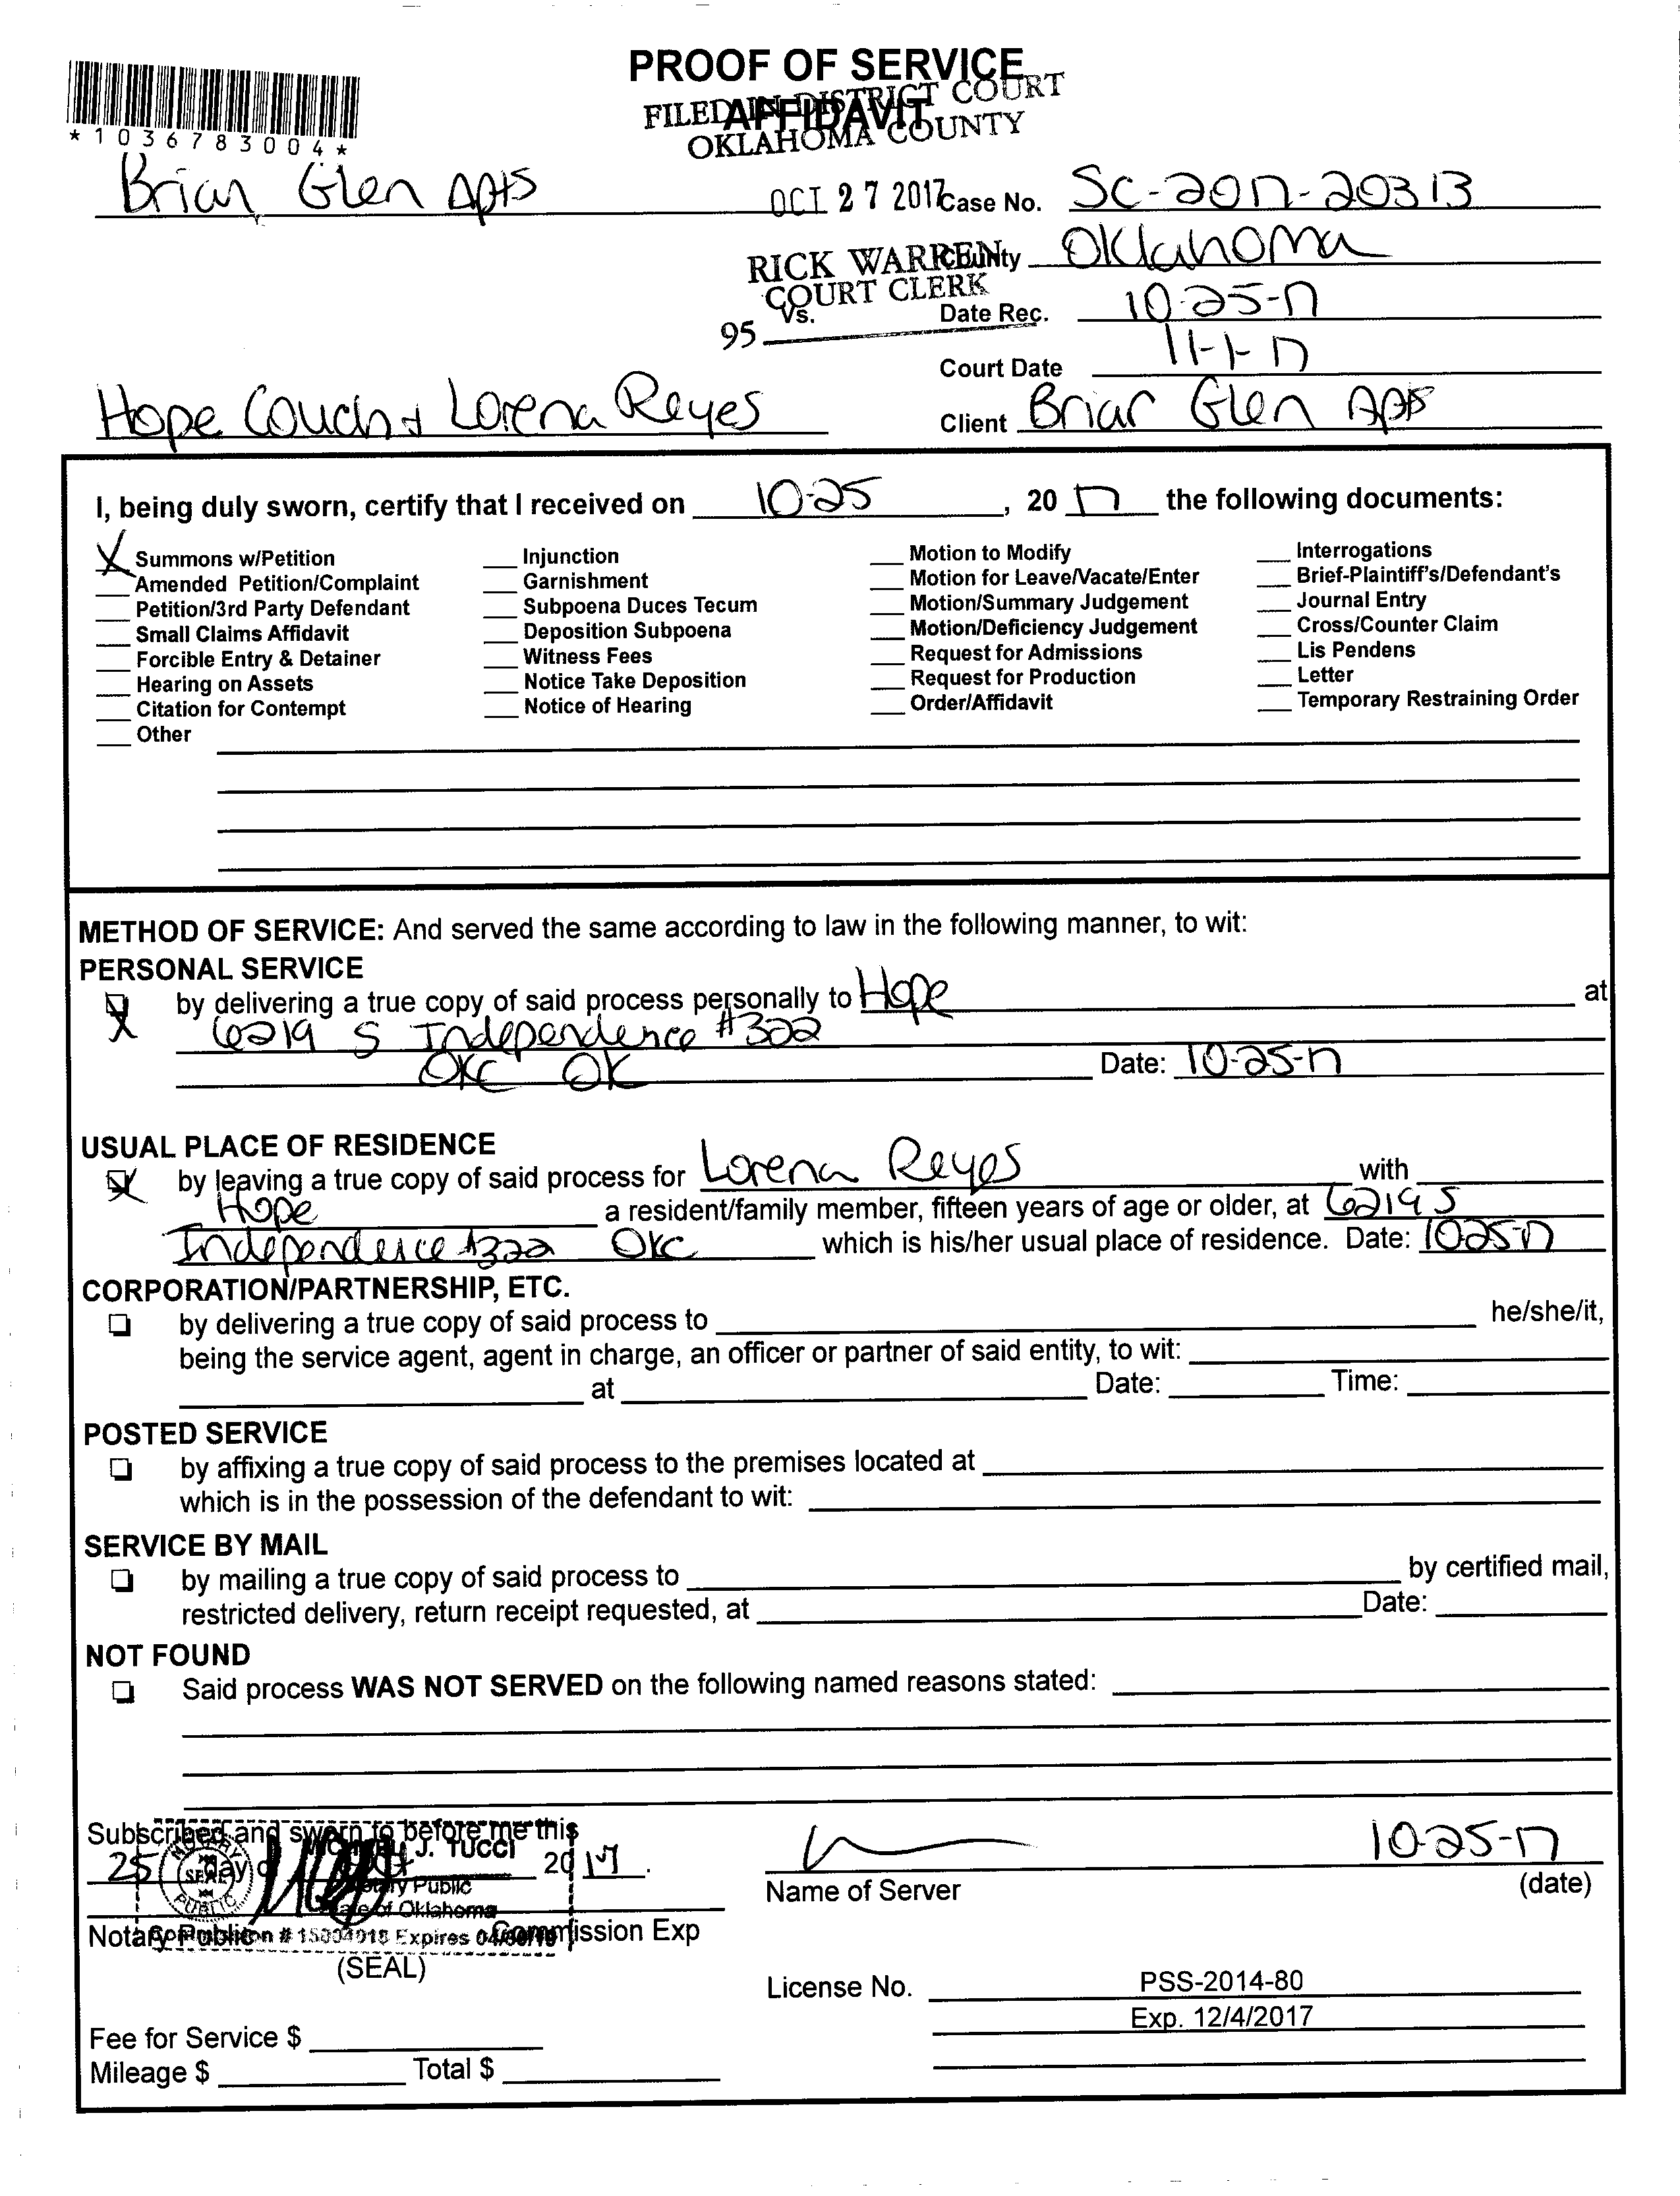 PROOF OF SERVICE
AFFIDAVIT
FILED IN DISTRICT COURT
OKLAHOMA COUNTY
*1036783004*
Briar Glen Apts
OCT 27 2017
Case No. SC-2017-20313
RICK WARREN
COURT CLERK
County Oklahoma
Vs.
95
Date Rec. 10-25-17
Court Date 11-1-17
Hope Couch & Lorena Reyes
Client Briar Glen Apts
I, being duly sworn, certify that I received on 10-25, 20 17 the following documents:
X Summons w/Petition
Amended Petition/Complaint
Petition/3rd Party Defendant
Small Claims Affidavit
Forcible Entry & Detainer
Hearing on Assets
Citation for Contempt
Other
Injunction
Garnishment
Subpoena Duces Tecum
Deposition Subpoena
Witness Fees
Notice Take Deposition
Notice of Hearing
Motion to Modify
Motion for Leave/Vacate/Enter
Motion/Summary Judgement
Motion/Deficiency Judgement
Request for Admissions
Request for Production
Order/Affidavit
Interrogations
Brief-Plaintiff's/Defendant's
Journal Entry
Cross/Counter Claim
Lis Pendens
Letter
Temporary Restraining Order
METHOD OF SERVICE: And served the same according to law in the following manner, to wit:
PERSONAL SERVICE
X by delivering a true copy of said process personally to Hope at
6219 S Independence #322
OKC OK Date: 10-25-17
USUAL PLACE OF RESIDENCE
X by leaving a true copy of said process for Lorena Reyes with
Hope a resident/family member, fifteen years of age or older, at 6219 S
Independence #322 OKC which is his/her usual place of residence. Date: 10-25-17
CORPORATION/PARTNERSHIP, ETC.
by delivering a true copy of said process to he/she/it,
being the service agent, agent in charge, an officer or partner of said entity, to wit:
at Date: Time:
POSTED SERVICE
by affixing a true copy of said process to the premises located at
which is in the possession of the defendant to wit:
SERVICE BY MAIL
by mailing a true copy of said process to by certified mail,
restricted delivery, return receipt requested, at Date:
NOT FOUND
Said process WAS NOT SERVED on the following named reasons stated:
Subscribed and sworn to before me this
25 day of 20 17.
J. TUCCI
Notary Public
State of Oklahoma
NOTARY SEAL PUBLIC
Notary Public Commission Exp
Commission # 15004018 Expires
(SEAL)
10-25-17
Name of Server (date)
License No. PSS-2014-80
Exp. 12/4/2017
Fee for Service $
Mileage $ Total $